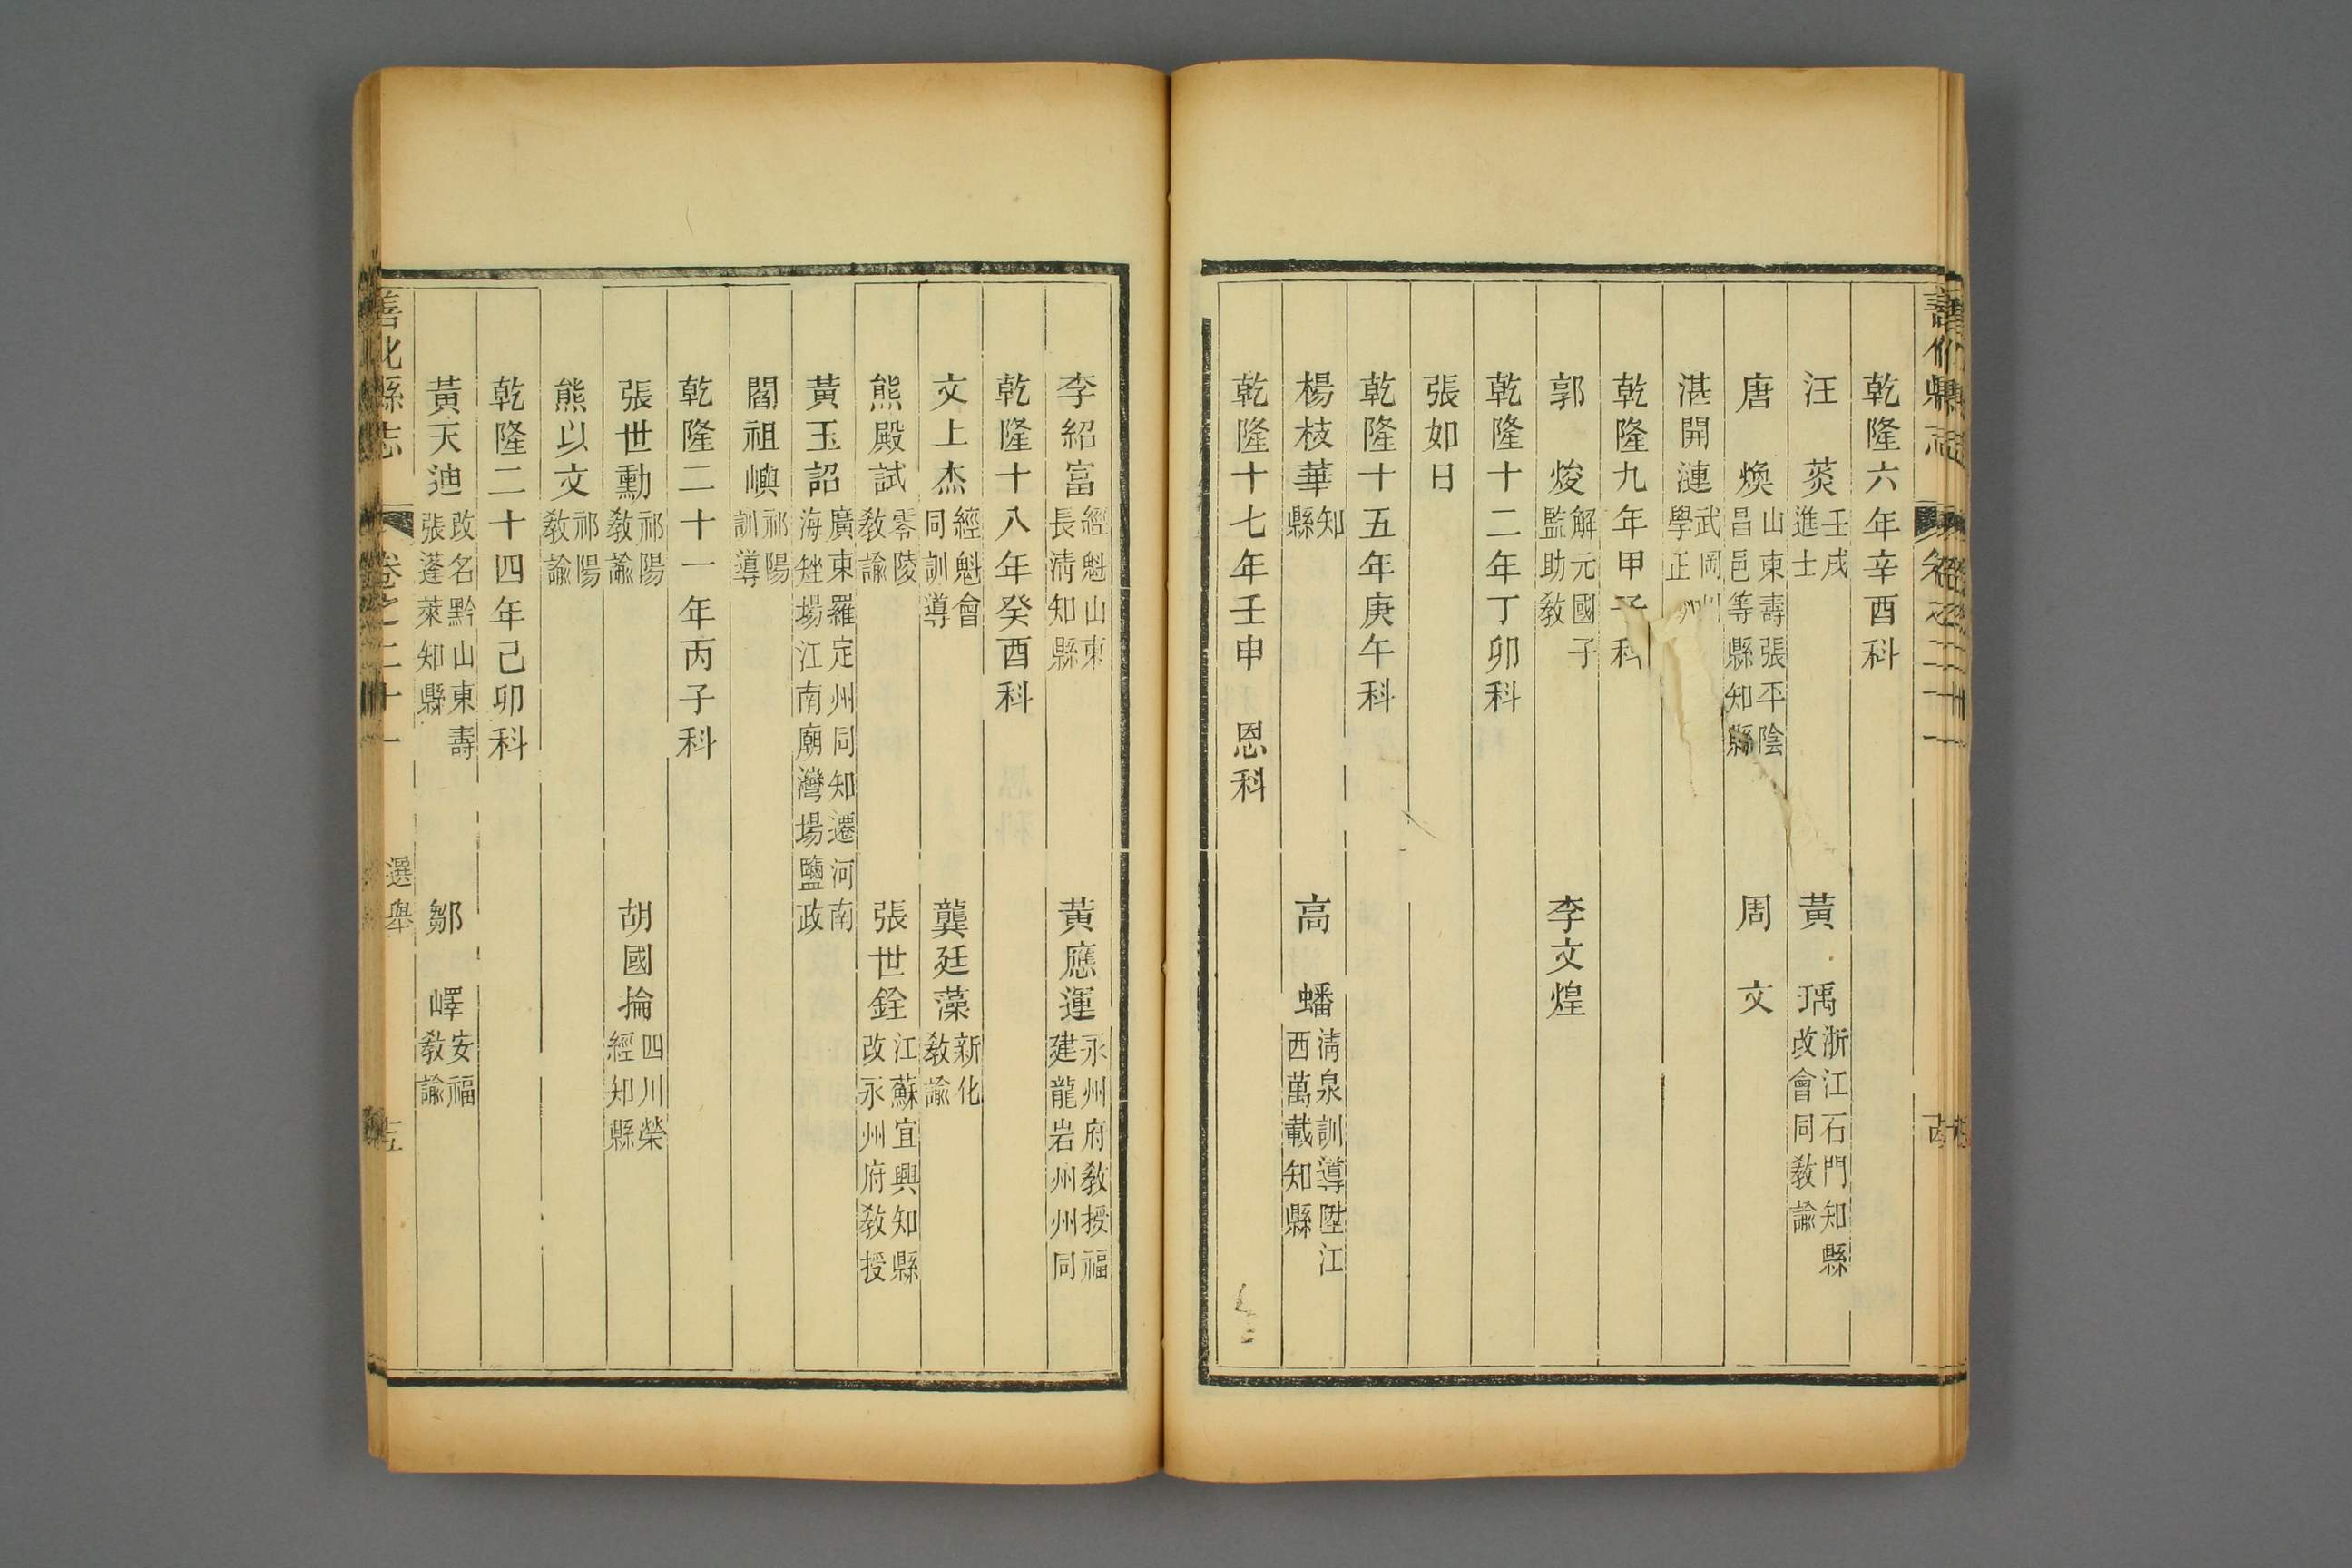 善化縣志 卷之二十一
乾隆六年辛酉科
汪 荧 壬戌進士 黃 瑀 浙江石門知縣改會同教諭
唐 煥 山東壽張平陰昌邑等縣知縣 周 文
湛開漣 武岡州學正
乾隆九年甲子科
郭 焌 解元國子監助教 李文煌
乾隆十二年丁卯科
張如日
乾隆十五年庚午科
楊枝華 知縣 高 蟠 淸泉訓導陞江西萬載知縣
乾隆十七年壬申 恩科
李紹富 經魁山東長淸知縣 黃應運 永州府教授福建龍岩州州同
乾隆十八年癸酉科
文上杰 經魁會同訓導 龔廷藻 新化教諭
熊殿試 零陵教諭 張世銓 江蘇宜興知縣改永州府教授
黃玉詔 廣東羅定州同知遷河南海矬場江南廟灣場鹽政
閻祖嶼 祁陽訓導
乾隆二十一年丙子科
張世勳 祁陽教諭 胡國掄 四川榮經知縣
熊以文 祁陽教諭
乾隆二十四年己卯科
黃天迪 改名黔山東壽張蓬萊知縣 鄒 嶧 安福教諭
善化縣志 卷之二十一 選舉